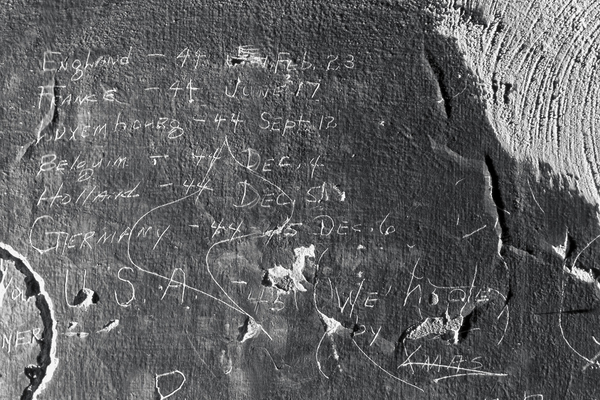 England - 44 Feb. 23
France - 44 June 17
Luxembourg - 44 Sept. 12
Belguim - 44 Dec. 4
Holland - 44 Dec. 5
Germany - 44 Dec. 6
U.S.A. - 45 (We hope)
By
XMAS
NER